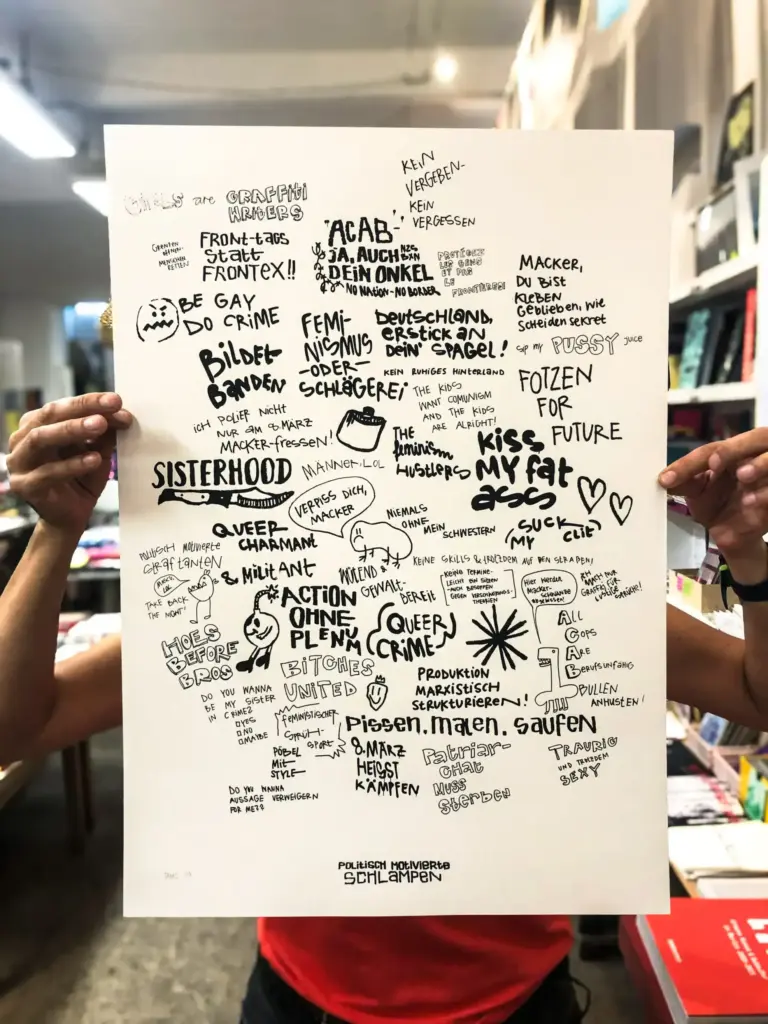 KEIN
VERGEBEN-
KEIN
VERGESSEN
GIRLS are GRAFFITI
WRITERS
GRENZEN
MENSCHEN
RETTEN
FRONT-TAGS
STATT
FRONTEX!!
"ACAB"
JA, AUCH
DEIN ONKEL
NO NATION-NO BORDER
PROTÉGEZ
LES GENS
ET PAS
LES FRONTIÈRES!
MACKER,
DU BIST
KLEBEN
GEBLIEBEN, WIE
SCHEIDENSEKRET
BE GAY
DO CRIME
FEMI-
NISMUS
-ODER-
SCHLÄGEREI
DEUTSCHLAND,
ERSTICK AN
DEIN' SPAGEL!
sip my PUSSY juice
BILDET
BANDEN
KEIN RUHIGES HINTERLAND
THE KIDS
WANT COMUNISM
AND THE KIDS
ARE ALRIGHT!
FOTZEN
FOR
FUTURE
ICH POLIER NICHT
NUR AM 8.MÄRZ
MACKER-FRESSEN!
THE
feminism
HUSTLERS
KISS
MY FAT
ASS
SISTERHOOD
MÄNNER, LOL
VERPISS DICH,
MACKER
NIEMALS
OHNE
MEIN
SCHWESTERN
(SUCK
MY CLIT)
QUEER
CHARMANT
& MILITANT
POLITISCH MOTIVIERTE
GRAFTANTEN
TAKE BACK
THE NIGHT!
WÜTEND &
GEWALT-
BEREIT
KEINE SKILLS & TROTZDEM AUF DEN STRAßEN!
KEINE TERMINE
LEICHT EIN SITZEN
AUCH BESOFFEN
GEGEN VERSCHWÖRUNGS-
THEORIEN
HIER WERDEN
MACKER-
SCHWÄNZE
ACTION
OHNE
PLENUM
QUEER
CRIME
ALL
COPS
ARE
BERUFSUNFÄHIG
BULLEN
ANHUSTEN!
HOES
BEFORE
BROS
BITCHES
UNITED
PRODUKTION
MARXISTISCH
STRUKTURIEREN!
DO YOU WANNA
BE MY SISTER
IN CRIME?
○YES
○NO
○MAYBE
FEMINISTISCHER
SPRÜH-
SPORT
PISSEN.MALEN.SAUFEN
PÖBEL
MIT
STYLE
8.MÄRZ
HEIßT
KÄMPFEN
PATRIAR-
CHAT
MUSS
STERBEN
TRAURIG
UND TROTZDEM
SEXY
DO YOU WANNA
AUSSAGE VERWEIGERN
FOR ME??
POLITISCH MOTIVIERTE
SCHLAMPEN